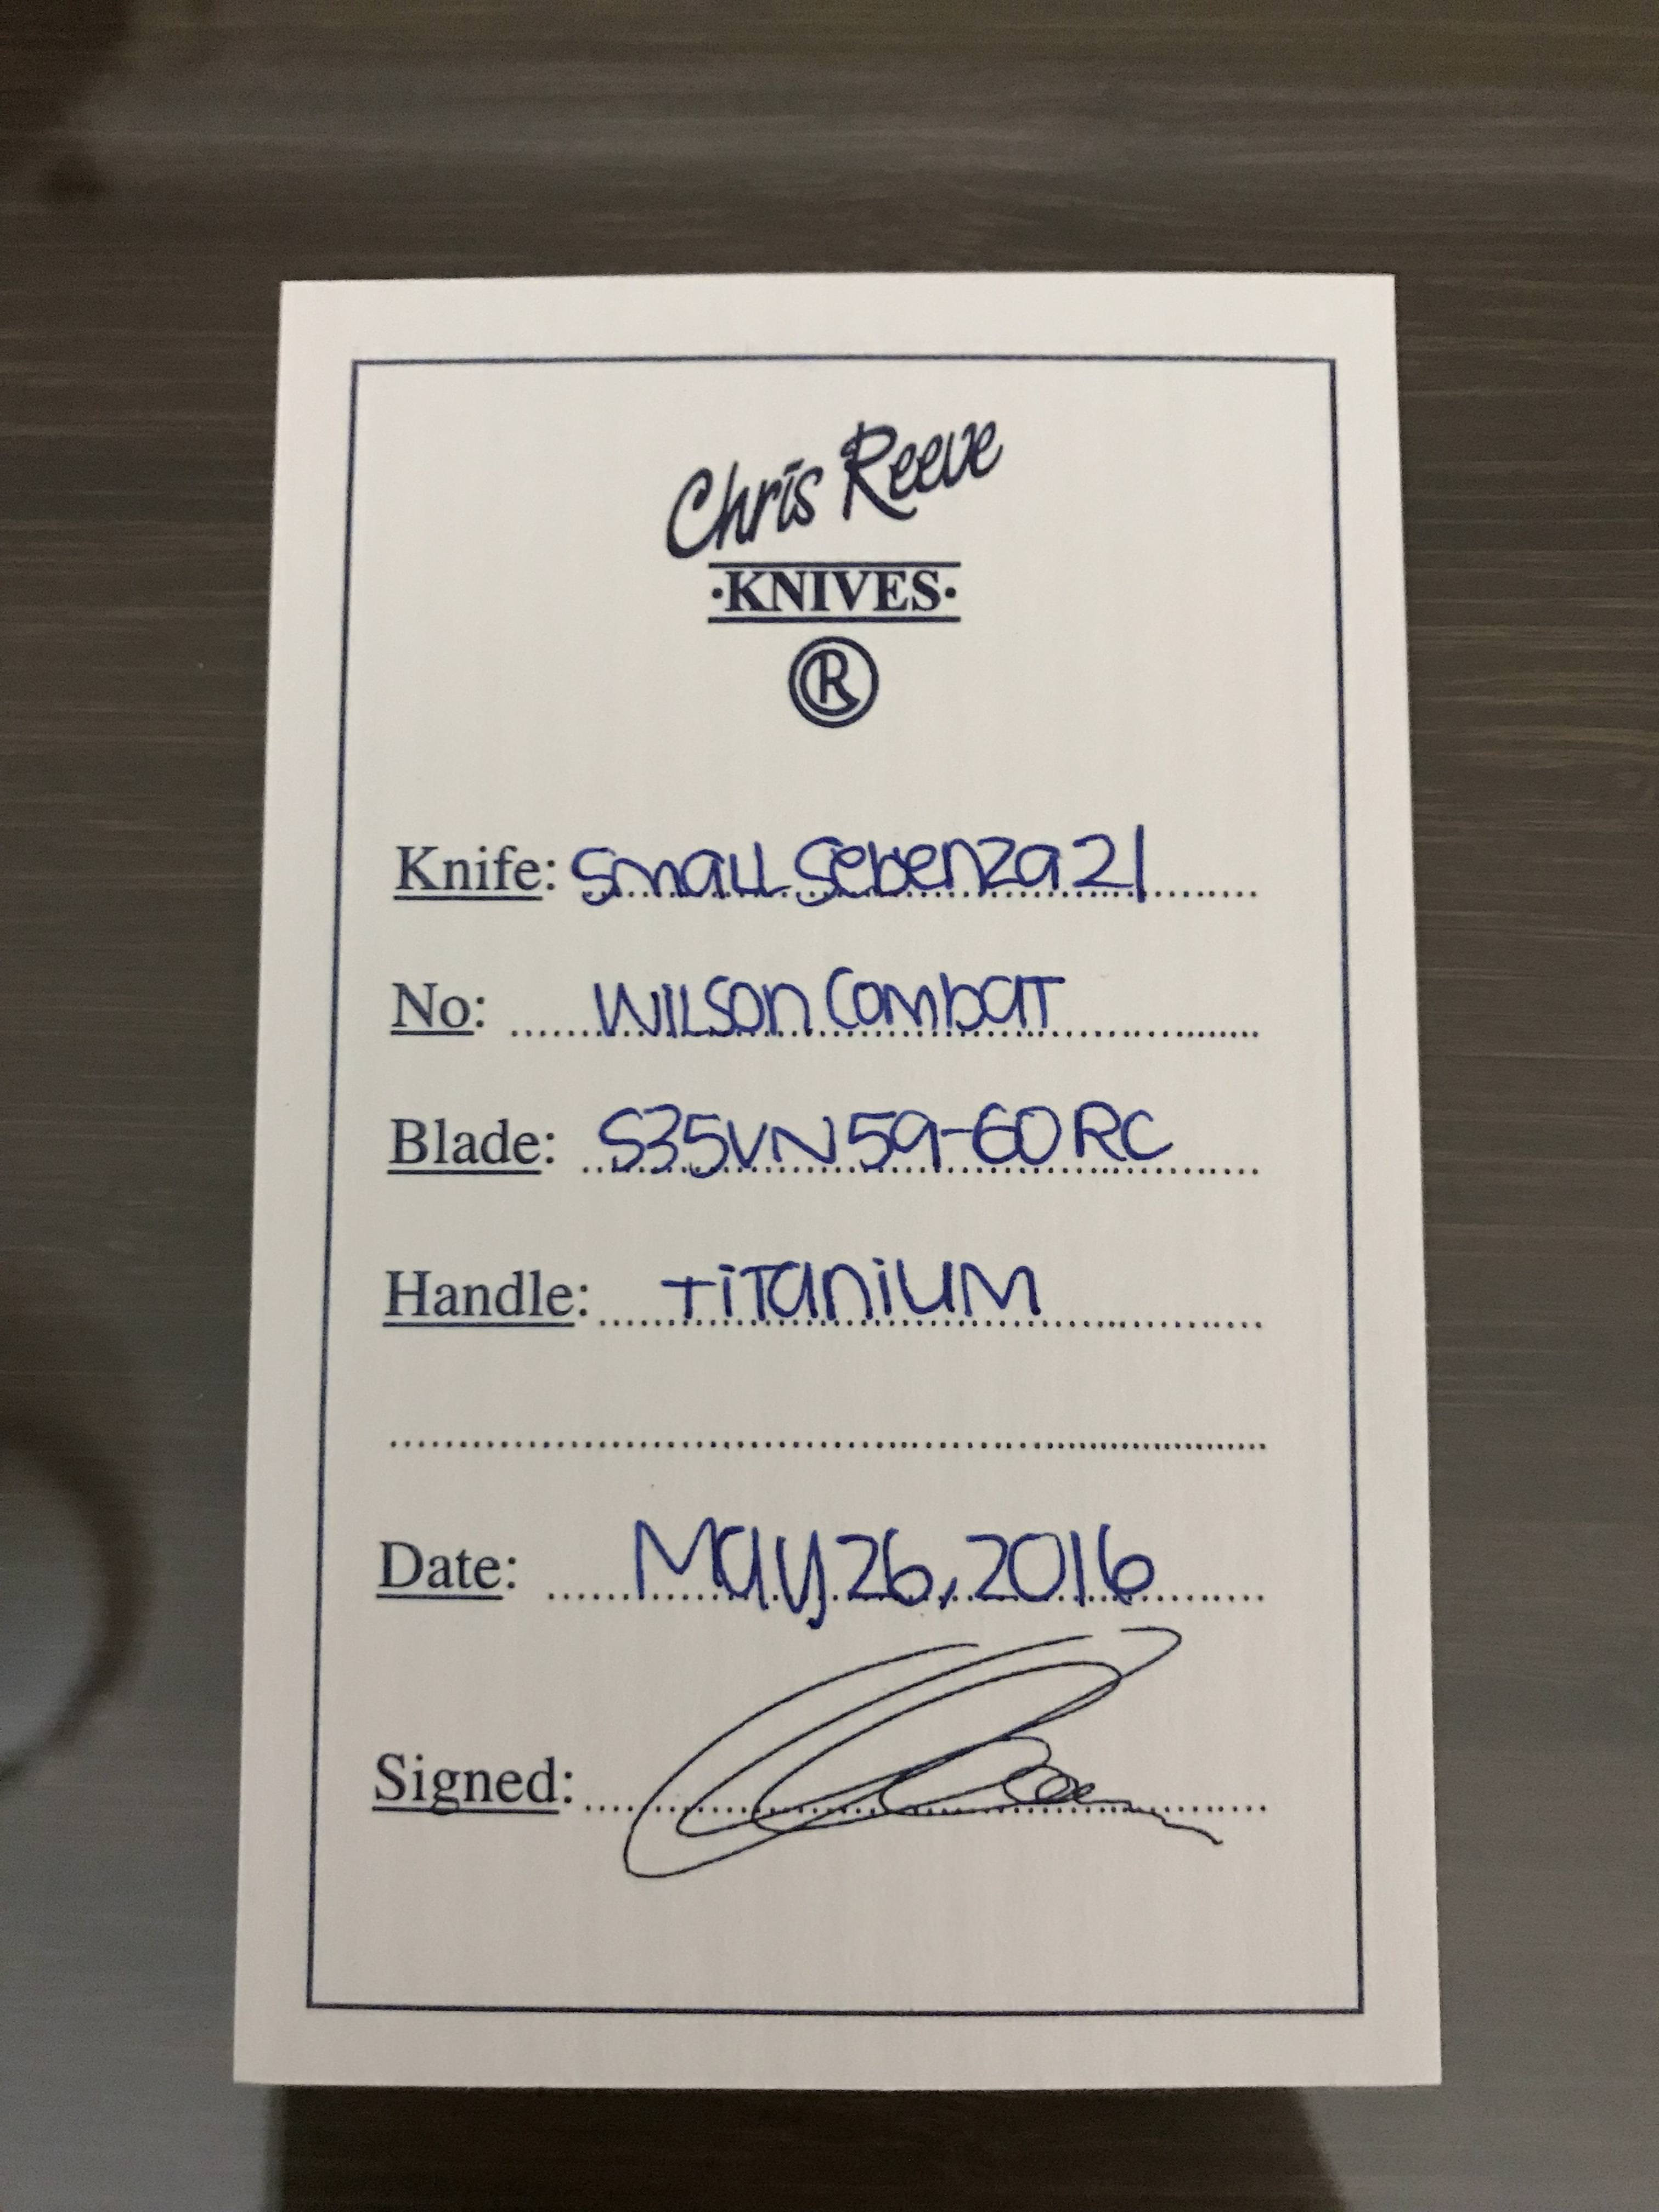 Chris Reeve
·KNIVES·
R
Knife: Small Sebenza 21
No: Wilson Combat
Blade: S35VN 59-60 RC
Handle: Titanium
Date: May 26, 2016
Signed: